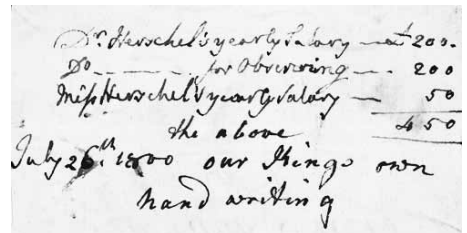 Dr. Herschel's yearly Salary — at 200.
Do — — — — for Observing — . 200
Miss Herschel's yearly Salary — 50
450
the above
July 26th. 1800 our Kings own
hand writing